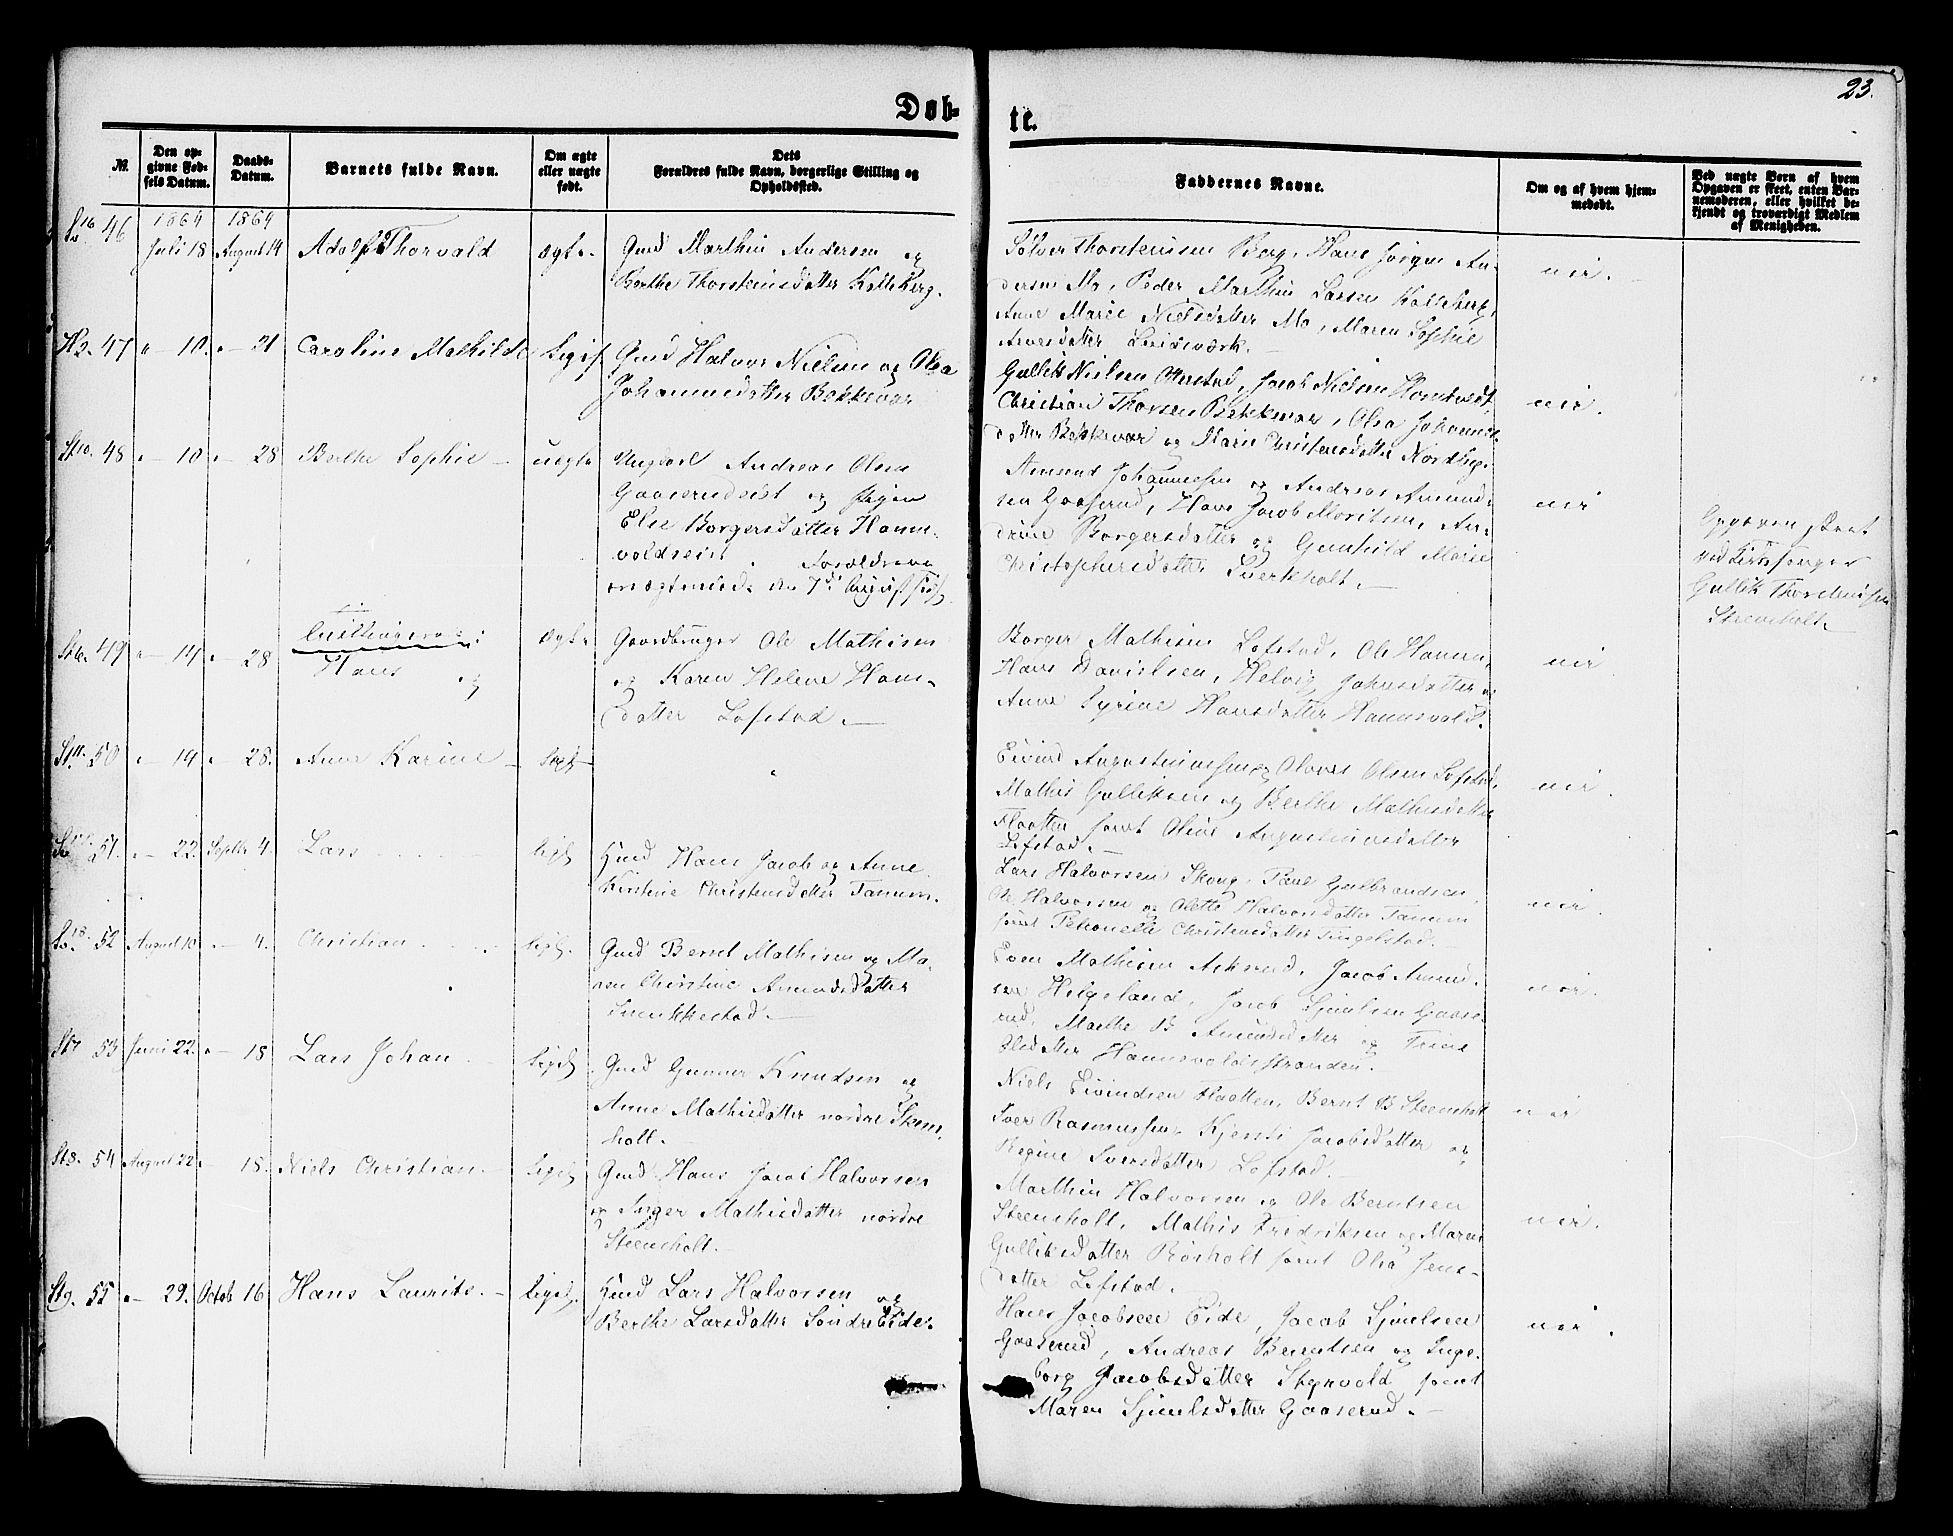 Døb-
te.
23.
№.
Den op-
givne Fød-
sels Datum.
Daabs-
Datum.
Barnets fulde Navn.
Om ægte
eller uægte
født.
Dets
Forældres fulde Navn, borgerlige Stilling og
Opholdssted.
Faddernes Navne.
Om og af hvem hjem-
medøbt.
Ved uægte Børn af hvem
Opgaven er skeet, enten Bar-
nemoderen, eller hvilket be-
kjendt og troværdigt Medlem
af Menigheden.
46
1864
Juli 18
1864
August 14
Adolf Thorvald
ægte.
Gmd Marthin Andersen og
Berthe Thorsteinsdatter Kolleberg.
Sølver Thorsteinsen Berg, Hans Jørgen An-
dersen Mo, Peder Marthin Larsen Kolleberg,
Anne Marie Nielsdatter Mo, Maren Sophie
nei.
47 " — 10. " — 21
Caroline Mathilde
liges.
Gmd Halvor Nielsen og Olea
Johannesdatter Bekkevar
Gullik Nielsen, Jacob Nielsen Homtvedt,
Christian Thorsen Bekkevar, Olea Johannes-
datter Bekkevar og Maren
nei.
48 " — 10 " — 28
Berthe Sophie —
uægte
Ungkarl Andreas Olsen
Gaaserudeiet og Pigen
Else Borgersdatter Hanne-
voldseiet. Forældrene
den 7de August
Amund Johannesen og Andreas Amund-
sen Gaaserud, Hans Jacob Moritsen, An-
drine Borgersdatter og Gunhild Marie
Christophersdatter —
nei
Opgaven skeet
ved Kirkesanger
Gullik Thorsteinsen
Steensholt.
49 " — 14 " — 28
Tvillingerne:
Hans og
ægte
Gaardbruger Ole Mathisen
og Karen Helene Hans-
datter Lofstad. —
Borger Mathisen Lofstad, Ole Hansen,
Hans Danielsen, Helvig Johnsdatter og
Anne Syrine Hansdatter Hannevold.
nei
50 " — 14 " — 28.
Anne Karine —
ligel
Eivind Augustinussen og Olaves Olsen Lofstad,
Mathis Gulliksen og Berthe Mathisdatter
Flaatten samt Oline Augustinusdatter
Lofstad. —
nei.
51. " — 22. Septbr 4.
Lars
ligel
Hmd Hans Jacob og Anne
Kirstine Christensdatter Tanum.
Lars Halvorsen Skoug, Paul Gulbrandsen,
Ole Halvorsen og Olette Halvorsdatter Tanum
samt Petronelle Christensdatter Tingelstad. —
nei.
52 August 10 " — 4.
Christian
ligel.
Gmd Bernt Mathisen og Ma-
ren Christine Amundsdatter
Even Mathisen, Jacob Amund-
sen Helgeland, Jacob Sjulsen Gaase-
rud, Marthe B Amundsdatter og Trine
Olsdatter Hannevoldsstranden.
nei.
53 Juni 22. " — 18
Lars Johan
ligel
Gmd Gunner Knudsen og
Anne Mathisdatter nordre Steens-
holt. —
Niels Eivindsen Flaatten, Bernt B Steensholt
Iver Rasmussen, Kjersti Jacobsdatter og
Regine Iversdatter Lofstad. —
nei
54 August 22 — 18.
Niels Christian —
ligel
Gmd Hans Jacob Halvorsen
og Inger Mathisdatter nordre
Steensholt.
Marthin Halvorsen og Ole Berntsen
Steensholt, Mathis Fredriksen og Maren
Gulliksdatter Røsholt samt Olea Jens-
datter Lofstad. —
nei.
St9. 55 " — 29. Octob 16
Hans Laurits. —
ligel.
Hmd Lars Halvorsen og
Berthe Larsdatter Søndre Eide.
Hans Jacobsen Eide, Jacob Sjulsen
Gaaserud, Andreas Berntsen og Inge-
borg Jacobsdatter samt
Maren Sjulsdatter Gaaserud. —
nei.